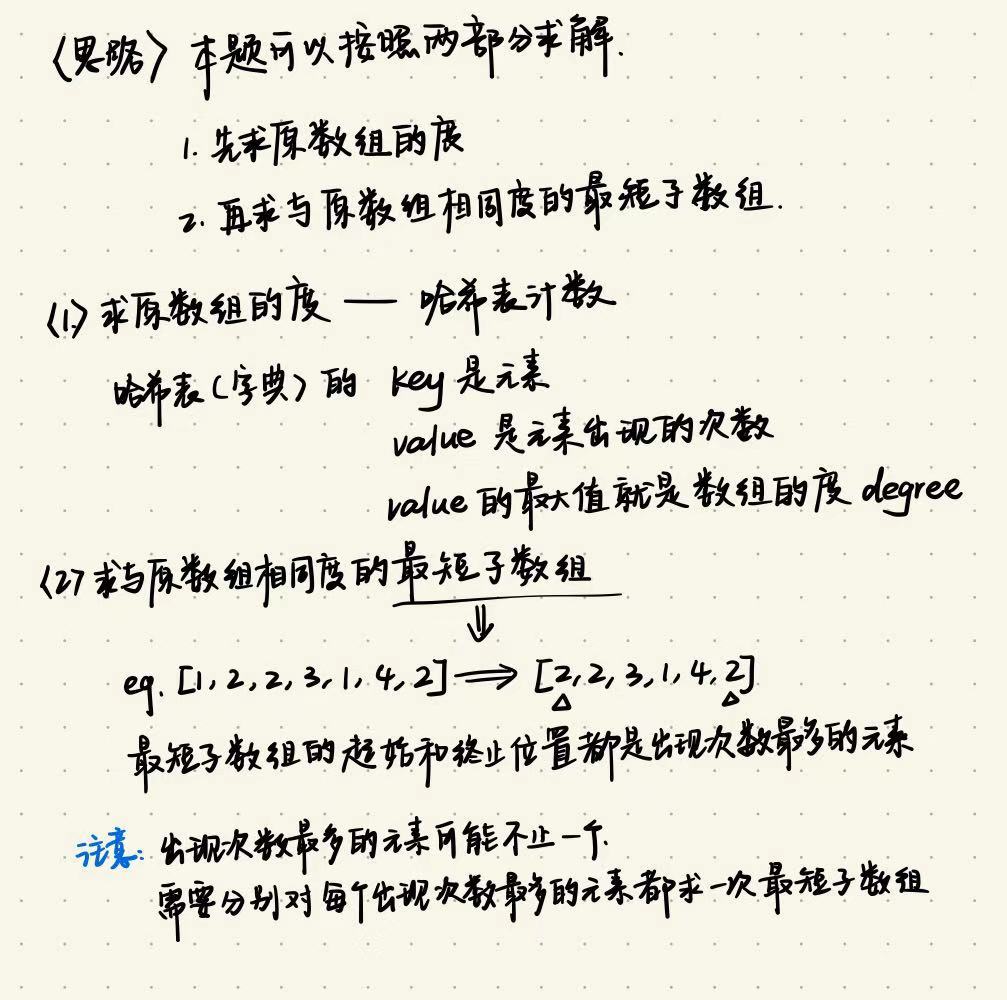 〈思路〉本题可以按照两部分求解.
1. 先求原数组的度
2. 再求与原数组相同度的最短子数组.
〈1〉求原数组的度 —— 哈希表计数
哈希表(字典)的 key 是元素
value 是元素出现的次数
value 的最大值就是数组的度 degree
〈2〉求与原数组相同度的最短子数组
⇓
eg. [1, 2, 2, 3, 1, 4, 2] ⟹ [2, 2, 3, 1, 4, 2]
△ △
最短子数组的起始和终止位置都是出现次数最多的元素
注意: 出现次数最多的元素可能不止一个.
需要分别对每个出现次数最多的元素都求一次最短子数组